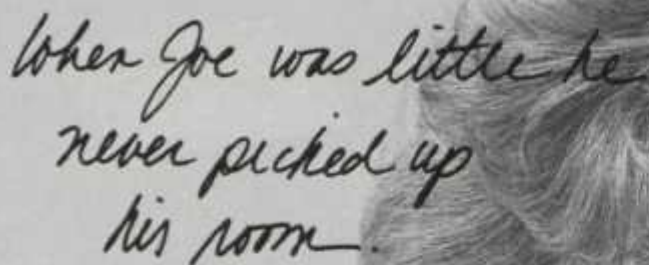 When Joe was little he
never picked up
his room.